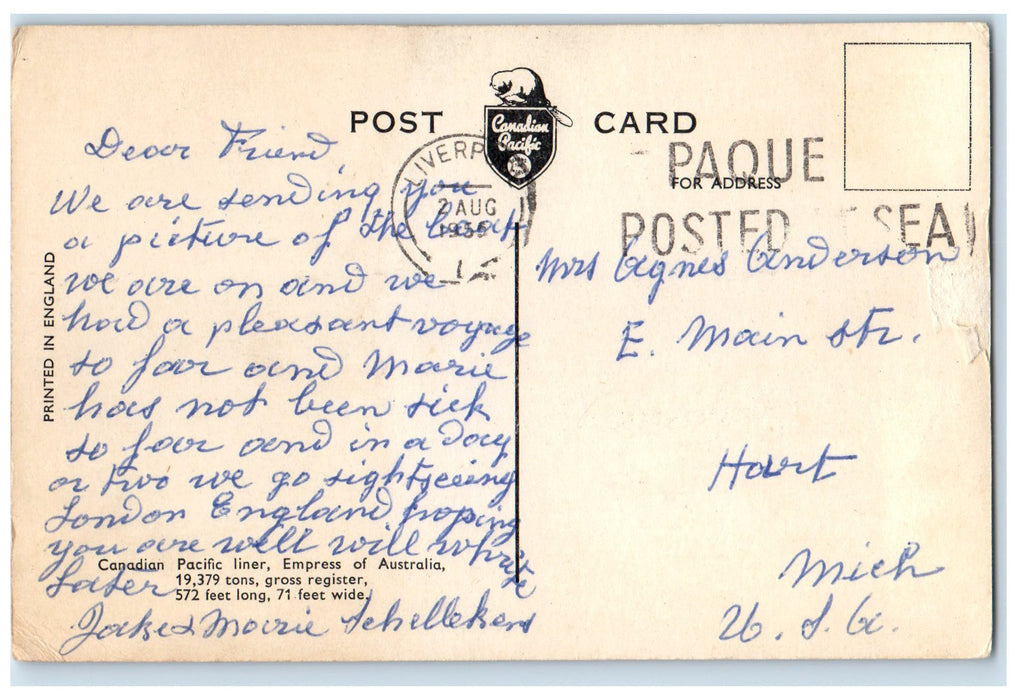 POST CARD
Canadian
Pacific
LIVERP
2 AUG
PAQUE
FOR ADDRESS
POSTED SEA
PRINTED IN ENGLAND
Dear Friend,
We are sending you
a picture of the boat
we are on and we
had a pleasant voyage
so far and Marie
has not been sick
so far and in a day
or two we go sightseeing
London England hoping
you are well will write
Later
Jake & Marie Schellekens
Canadian Pacific liner, Empress of Australia,
19,379 tons, gross register,
572 feet long, 71 feet wide,
Mrs Agnes Anderson
E. Main str.
Hart
Mich
U.S.A.